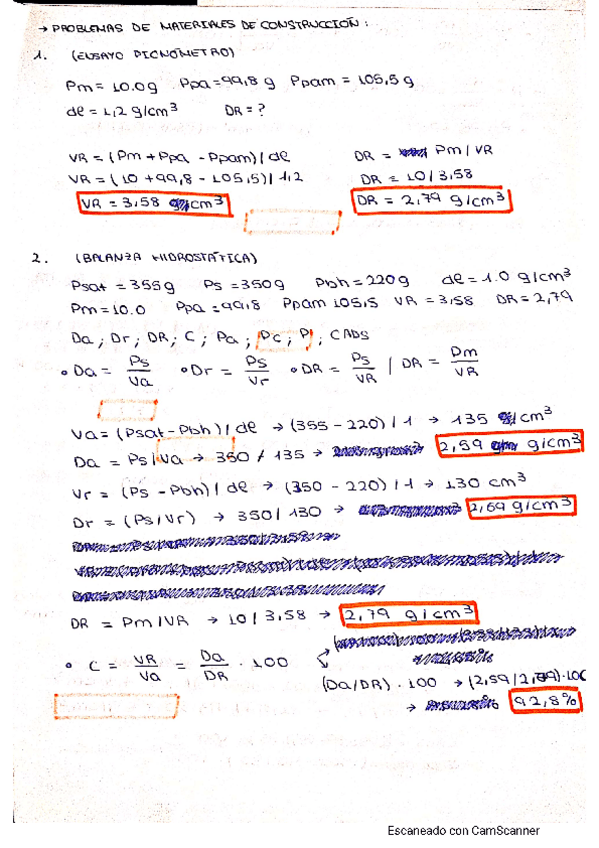 → PROBLEMAS DE MATERIALES DE CONSTRUCCIÓN :
1. (ENSAYO PICNÓMETRO)
Pm = 10.0g Ppa = 99,8 g Ppam = 105,5 g
de = 1,2 g/cm³ DR = ?
VR = (Pm + Ppa - Ppam) / de DR = Pm / VR
VR = (10 + 99,8 - 105,5) / 1,2 DR = 10 / 3,58
VR = 3,58 /cm³ DR = 2,79 g/cm³
2. (BALANZA HIDROSTÁTICA)
Psat = 355g Ps = 350g Pbh = 220g de = 1.0 g/cm³
Pm = 10.0 Ppa = 99,8 Ppam 105,5 VR = 3,58 DR = 2,79
Da ; Dr ; DR ; C ; Pa ; Pc ; P ; CADS
• Da = Ps/Va • Dr = Ps/Vr • DR = Ps/VR / DR = Pm/VR
Va = (Psat - Pbh) / de → (355 - 220) / 1 → 135 /cm³
Da = Ps / Va → 350 / 135 → 2,59 g/cm³
Vr = (Ps - Pbh) / de → (350 - 220) / 1 → 130 cm³
Dr = (Ps / Vr) → 350 / 130 → 2,69 g/cm³
DR = Pm / VR → 10 / 3,58 → 2,79 g/cm³
• C = VR/Va = Da/DR · 100
(Da/DR) · 100 → (2,59 / 2,79) · 100
→ 92,8%
Escaneado con CamScanner